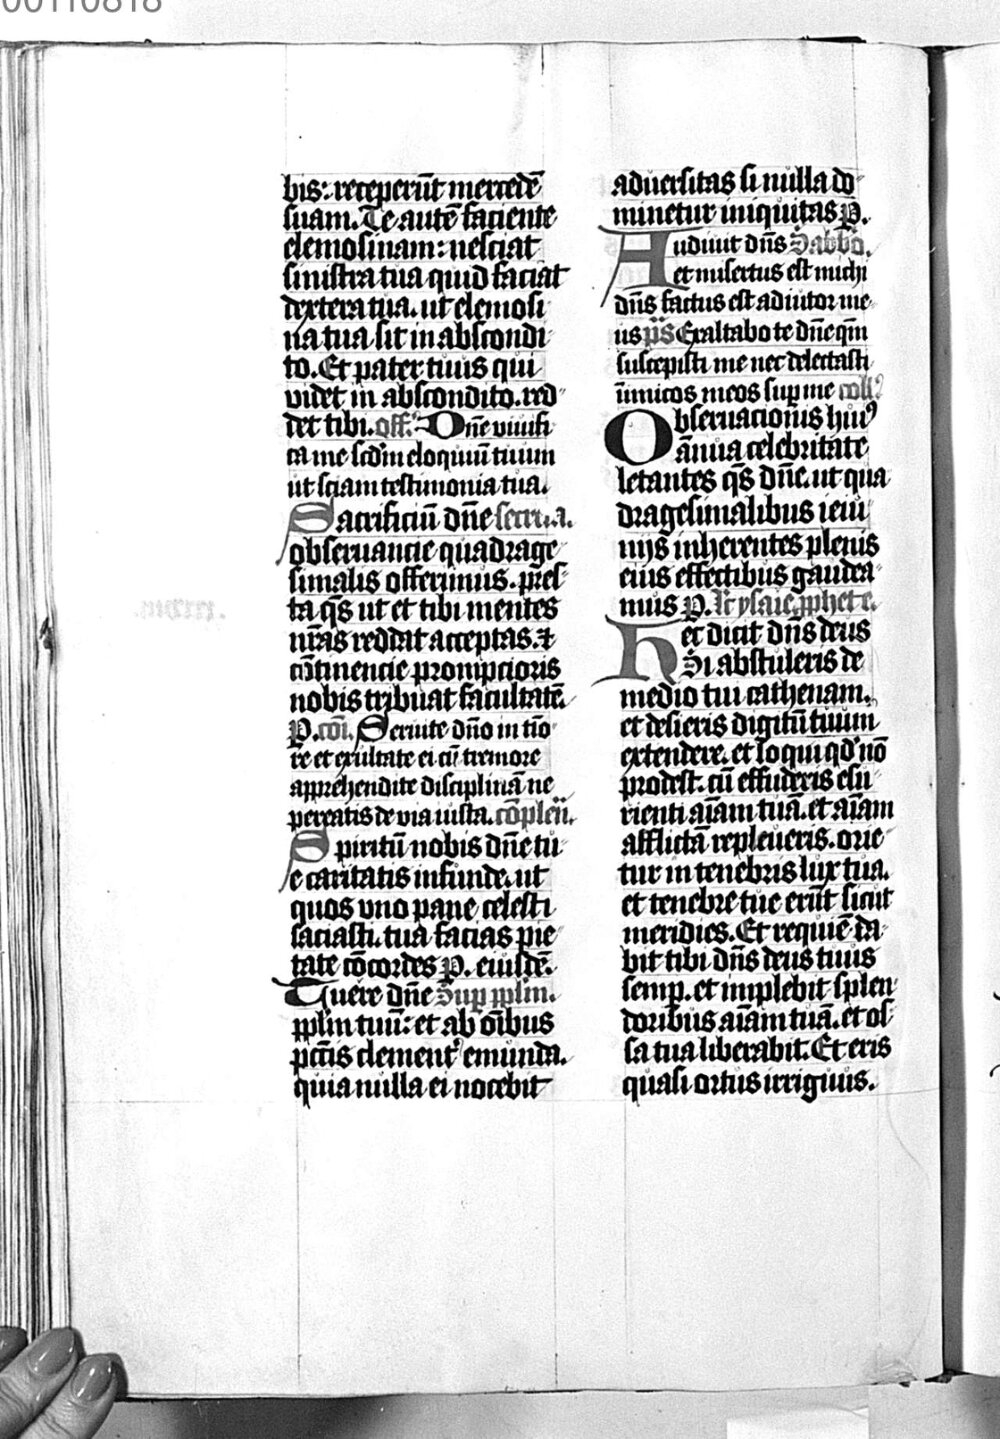 00110818
bis: receperūt mercedē
suam. Te autē faciente
elemosinam: nesciat
sinistra tua quid faciat
dextera tua. ut elemosi
na tua sit in abscondi
to. Et pater tuus qui
videt in abscondito. red
det tibi. off. Dn̄e viuifi
ca me scd̄m eloquiū tuum
ut sciam testimonia tua.
Sacrificiū dn̄e secreta.
obseruancie quadrage
simalis offerimus. pres
ta qs̄ ut et tibi mentes
nr̄as reddat acceptas. ⁊
cōtinencie prompcioris
nobis tribuat facultatē.
P. cōi. Seruite dn̄o in tīo
re et exultate ei cū tremore
apprehendite disciplinā ne
pereatis de via iusta. cōplen̄.
Spiritū nobis dn̄e tu
e caritatis infunde. ut
quos vno pane celesti
saciasti. tua facias pie
tate cōcordes P. eiusdē.
Tuere dn̄e Sup pplm̄.
pplm̄ tuū: et ab oībus
pctīs clement᾽ emunda.
quia nulla ei nocebit
aduersitas si nulla do
minetur iniquitas P.
Audiuit dn̄s Sabbō.
et misertus est michi
dn̄s factus est adiutor me
us p̄s Exaltabo te dn̄e qm̄
suscepisti me nec delectasti
īimicos meos sup me coll᾽
Obseruacionis huiꝰ
ānua celebritate
letantes qs̄ dn̄e. ut qua
dragesimalibus ieiu
niis inherentes plenis
eius effectibus gaudea
mus P. Lc ysaie pphete.
Hec dicit dn̄s deus
Si abstuleris de
medio tui cathenam.
et desieris digitū tuum
extendere. et loqui qd᾽ nō
prodest. cū effuderis esu
rienti aīam tuā. et aīam
afflictā repleueris. orie
tur in tenebris lux tua.
et tenebre tue erūt sicut
meridies. Et requiē da
bit tibi dn̄s deus tuus
semp. et implebit splen
doribus aīam tuā. et os
sa tua liberabit. Et eris
quasi ortus irriguus.